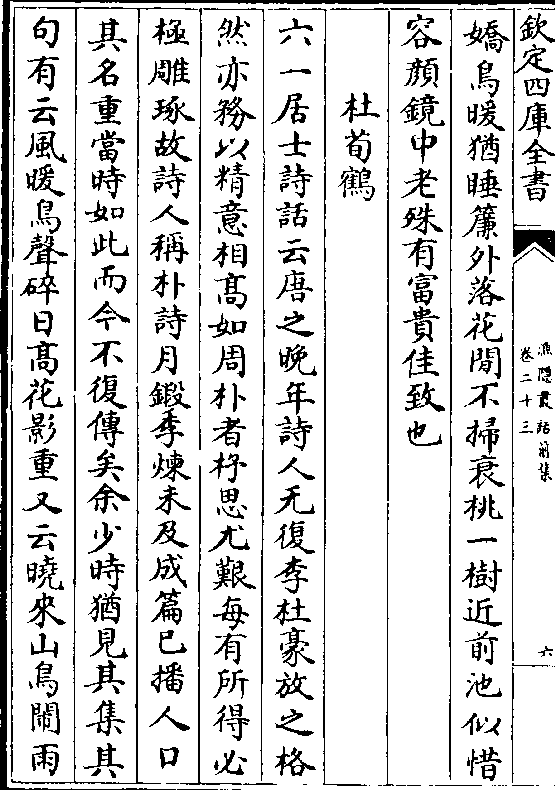 欽定四庫全書
漁隱叢話前集
卷二十三
六
嬌鳥暖猶睡簾外落花閒不掃衰桃一樹近前池似惜
容顔鏡中老殊有富貴佳致也
杜荀鶴
六一居士詩話云唐之晚年詩人无復李杜豪放之格
然亦務以精意相髙如周朴者杼思尤艱每有所得必
極雕琢故詩人稱朴詩月鍛季煉未及成篇已播人口
其名重當時如此而今不復傳矣余少時猶見其集其
句有云風暖鳥聲碎日髙花影重又云曉來山鳥鬧雨